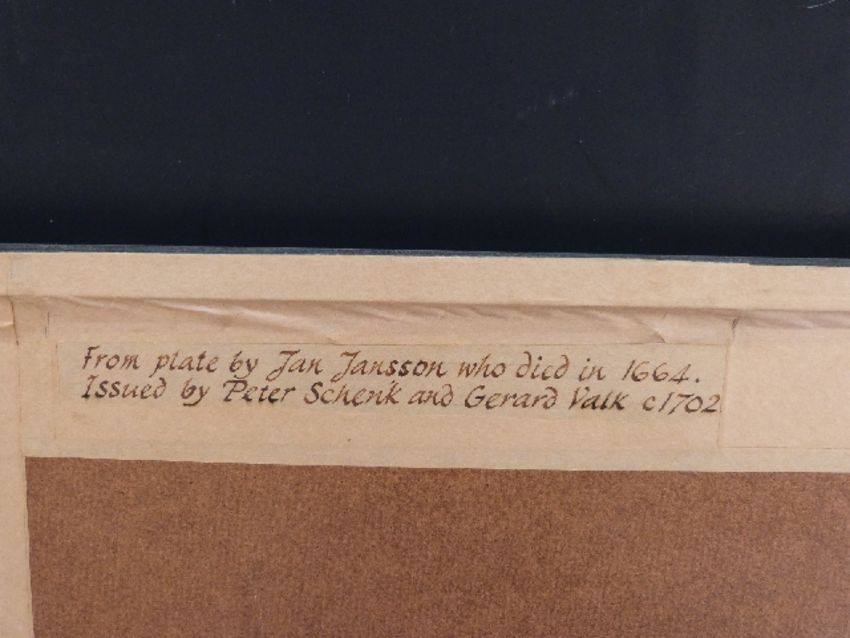 From plate by Jan Jansson who died in 1664.
Issued by Peter Schenk and Gerard Valk c1702